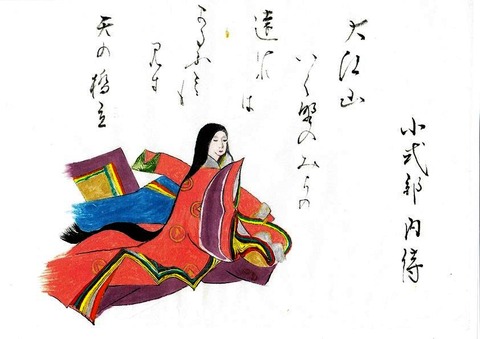 小式部内侍
大江山
いく野のみちの
遠けれは
またふみも
見す
天の橋立